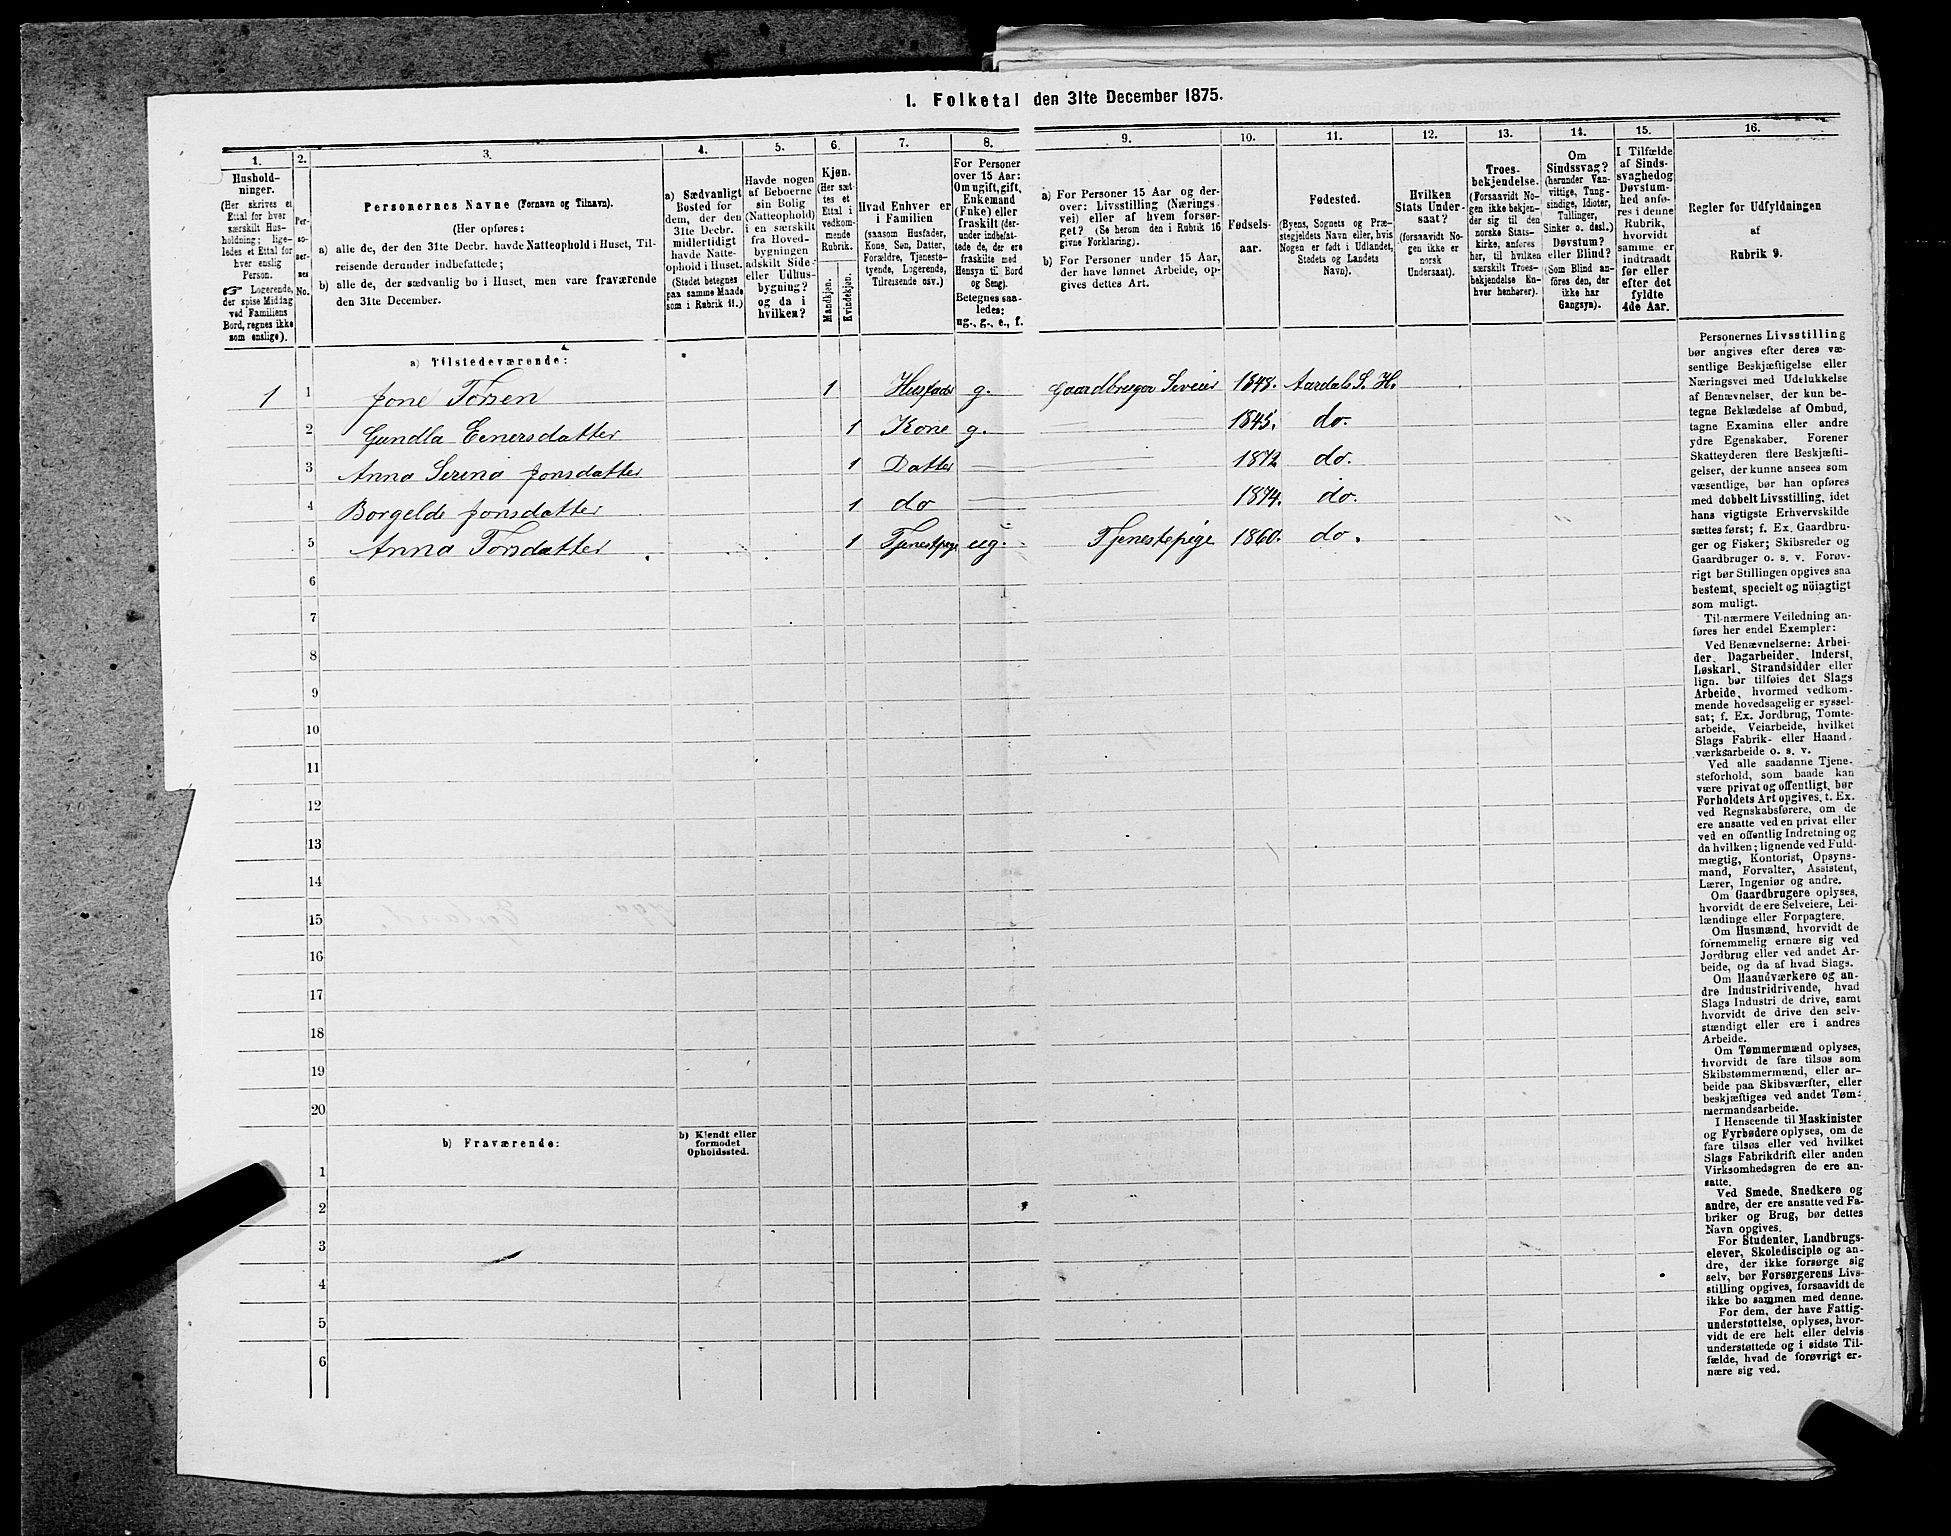 1. Folketal den 31te December 1875.
1. 2. 3. 4. 5. 6. 7. 8. 9. 10. 11. 12. 13. 14. 15. 16.
Hushold-
ninger.
(Her skrives et
Ettal for hver
særskilt Hus-
holdning; lige-
ledes et Ettal for
hver enslig
Person.
☞ Logerende,
der spise Middag
ved Familiens
Bord, regnes ikke
som enslige).
Per-
so-
ner-
nes
No.
Personernes Navne (Fornavn og Tilnavn).
(Her opføres:
a) alle de, der den 31te Decbr. havde Natteophold i Huset, Til-
reisende derunder indbefattede;
b) alle de, der sædvanlig bo i Huset, men vare fraværende
den 31te December.
a) Sædvanligt
Bosted for
dem, der den
31te Decbr.
midlertidigt
havde Natte-
ophold i Huset.
(Stedet betegnes
paa samme Maade
som i Rubrik 11.)
Havde nogen
af Beboerne
sin Bolig
(Natteophold)
i en særskilt
fra Hoved-
bygningen
adskilt Side-
eller Udhus-
bygning?
og da i
hvilken?
Kjøn.
(Her sæt-
tes et
Ettal i
vedkom-
mende
Rubrik.
Mandkjøn.
Kvindekjøn.
Hvad Enhver er
i Familien
(saasom Husfader,
Kone, Søn, Datter,
Forældre, Tjeneste-
tyende, Logerende,
Tilreisende osv.)
For Personer
over 15 Aar:
Om ugift, gift,
Enkemand
(Enke) eller
fraskilt (der-
under indbefat-
tede de, der ere
fraskilte med
Hensyn til Bord
og Seng).
Betegnes saa-
ledes:
ug., g., e., f.
a) For Personer 15 Aar og der-
over: Livsstilling (Nærings
vei) eller af hvem forsør-
get? (Se herom den i Rubrik 16
givne Forklaring).
b) For Personer under 15 Aar,
der have lønnet Arbeide, op-
gives dettes Art.
Fødsels-
aar.
Fødested.
(Byens, Sognets og Præ-
stegjeldets Navn eller, hvis
Nogen er født i Udlandet,
Stedets og Landets
Navn).
Hvilken
Stats Under-
saat?
(forsaavidt No-
gen ikke er
norsk
Undersaat).
Troes-
bekjendelse.
(Forsaavidt No-
gen ikke bekjen-
der sig til den
norske Stats-
kirke, anføres
her, til hvilken
særskilt Troes-
bekjendelse En-
hver henhører).
Om
Sindssvag?
(herunder Van-
vittige, Tung-
sindige, Idioter,
Tullinger,
Sinker o. desl.)
Døvstum?
eller Blind?
(Som Blind an-
føres den, der
ikke har
Gangsyn).
I Tilfælde
af Sinds-
svaghedog
Døvstum-
hed anfø-
res i denne
Rubrik,
hvorvidt
samme er
indtraadt
før eller
efter det
fyldte
4de Aar.
Regler før Udfyldningen
af
Rubrik 9.
a) Tilstedeværende:
1 1 Jone Torsen 1 Husfader g. Gaardbruger Selveier 1848. Aardals S. H.
2 Gundla Einersdatter 1 Kone g. 1845. do.
3 Anna Serina Jonsdatter 1 Datter 1872 do.
4 Borgelde Jonsdatter 1 do 1874. do.
5 Anna Torsdatter 1 Tjenestpige ug. Tjenestepige 1860. do.
6
7
8
9
10
11
12
13
14
15
16
17
18
19
20
b) Fraværende:
b) Kjendt eller
formodet
Opholdssted.
1
2
3
4
5
6
Personernes Livsstilling
bør angives efter deres væ-
sentlige Beskjæftigelse eller
Næringsvei med Udelukkelse
af Benævnelser, der kun be-
tegne Beklædelse af Ombud,
tagne Examina eller andre
ydre Egenskaber. Forener
Skatteyderen flere Beskjæfti-
gelser, der kunne ansees som
væsentlige, bør han opføres
med dobbelt Livsstilling, idet
hans vigtigste Erhvervskilde
sættes først; f. Ex. Gaardbru-
ger og Fisker; Skibsreder og
Gaardbruger o. s. v. Forøv-
rigt bør Stillingen opgives saa
bestemt, specielt og nöiagtigt
som muligt.
Til nærmere Veiledning an-
føres her endel Exempler:
Ved Benævnelserne: Arbei-
der, Dagarbeider, Inderst,
Løskarl, Strandsidder eller
lign. bør tilføies det Slags
Arbeide, hvormed vedkom-
mende hovedsagelig er syssel-
sat; f. Ex. Jordbrug, Tomte-
arbeide, Veiarbeide, hvilket
Slags Fabrik- eller Haand-
værksarbeide o. s. v.
Ved alle saadanne Tjene-
steforhold, som baade kan
være privat og offentligt, bør
Forholdets Art opgives, t. Ex.
ved Regnskabsførere, om de
ere ansatte ved en privat eller
ved en offentlig Indretning og
da hvilken; lignende ved Fuld-
mægtig, Kontorist, Opsyns-
mand, Forvalter, Assistent,
Lærer, Ingeniør og andre.
Om Gaardbrugere oplyses,
hvorvidt de ere Selveiere, Lei-
lændinge eller Forpagtere.
Om Husmænd, hvorvidt de
fornemmelig ernære sig ved
Jordbrug eller ved andet Ar-
beide, og da af hvad Slags.
Om Haandværkere og an-
dre Industridrivende, hvad
Slags Industri de drive, samt
hvorvidt de drive den selv-
stændigt eller ere i andres
Arbeide.
Om Tømmermænd oplyses,
hvorvidt de fare tilsøs som
Skibstømmermænd, eller ar-
beide paa Skibsværfter, eller
beskjæftiges ved andet Tøm-
mermandsarbeide.
I Henseende til Maskinister
og Fyrbødere oplyses, om de
fare tilsøs eller ved hvilket
Slags Fabrikdrift eller anden
Virksomhedsgren de ere an-
satte.
Ved Smede, Snedkere og
andre, der ere ansatte ved Fa-
briker og Brug, bør dettes
Navn opgives.
For Studenter, Landbrugs-
elever, Skoledisciple og an-
dre, der ikke forsørge sig
selv, bør Forsørgerens Livs-
stilling opgives, forsaavidt de
ikke bo sammen med denne.
For dem, der have Fattig-
understøttelse, oplyses, hvor-
vidt de ere helt eller delvis
understøttede og i sidste Til-
fælde, hvad de forøvrigt er-
nære sig ved.